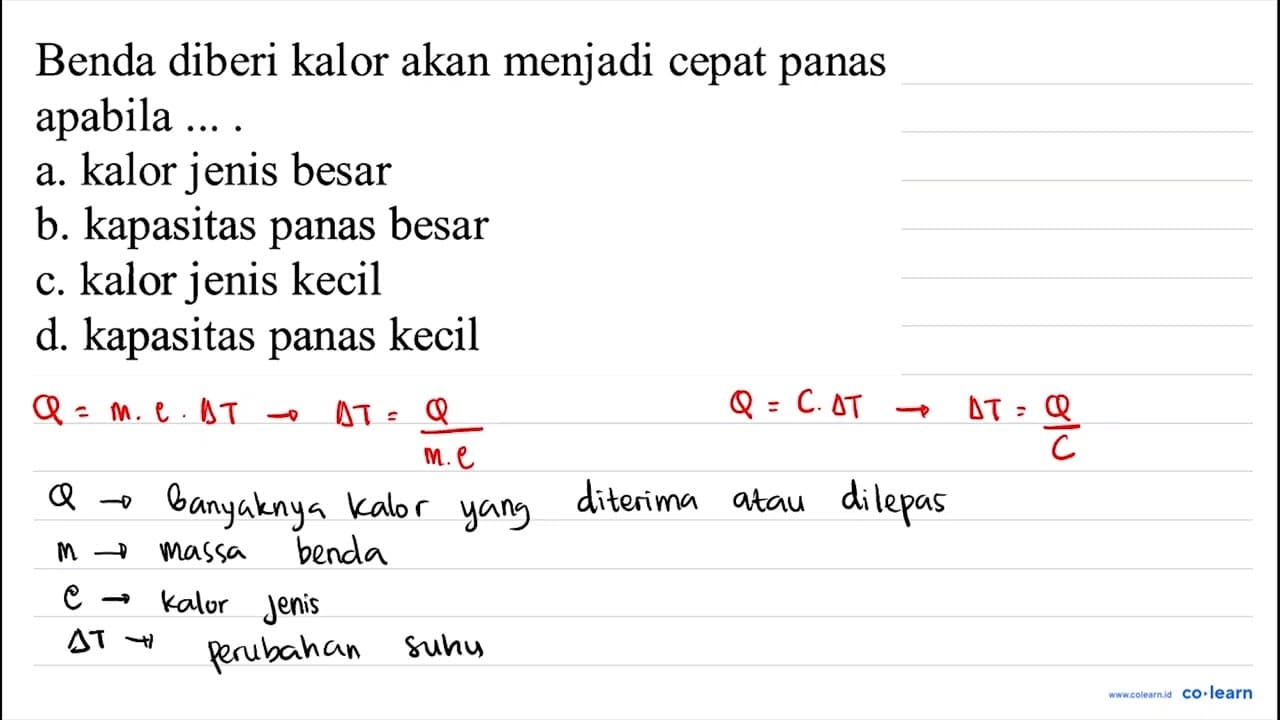 Benda diberi kalor akan menjadi cepat panas
apabila ... .
a. kalor jenis besar
b. kapasitas panas besar
c. kalor jenis kecil
d. kapasitas panas kecil
Q = m. c. ΔT → ΔT = Q / m.c
Q = C. ΔT → ΔT = Q / C
Q → Banyaknya kalor yang diterima atau dilepas
m → massa benda
c → kalor jenis
ΔT → perubahan suhu
www.colearn.id co·learn